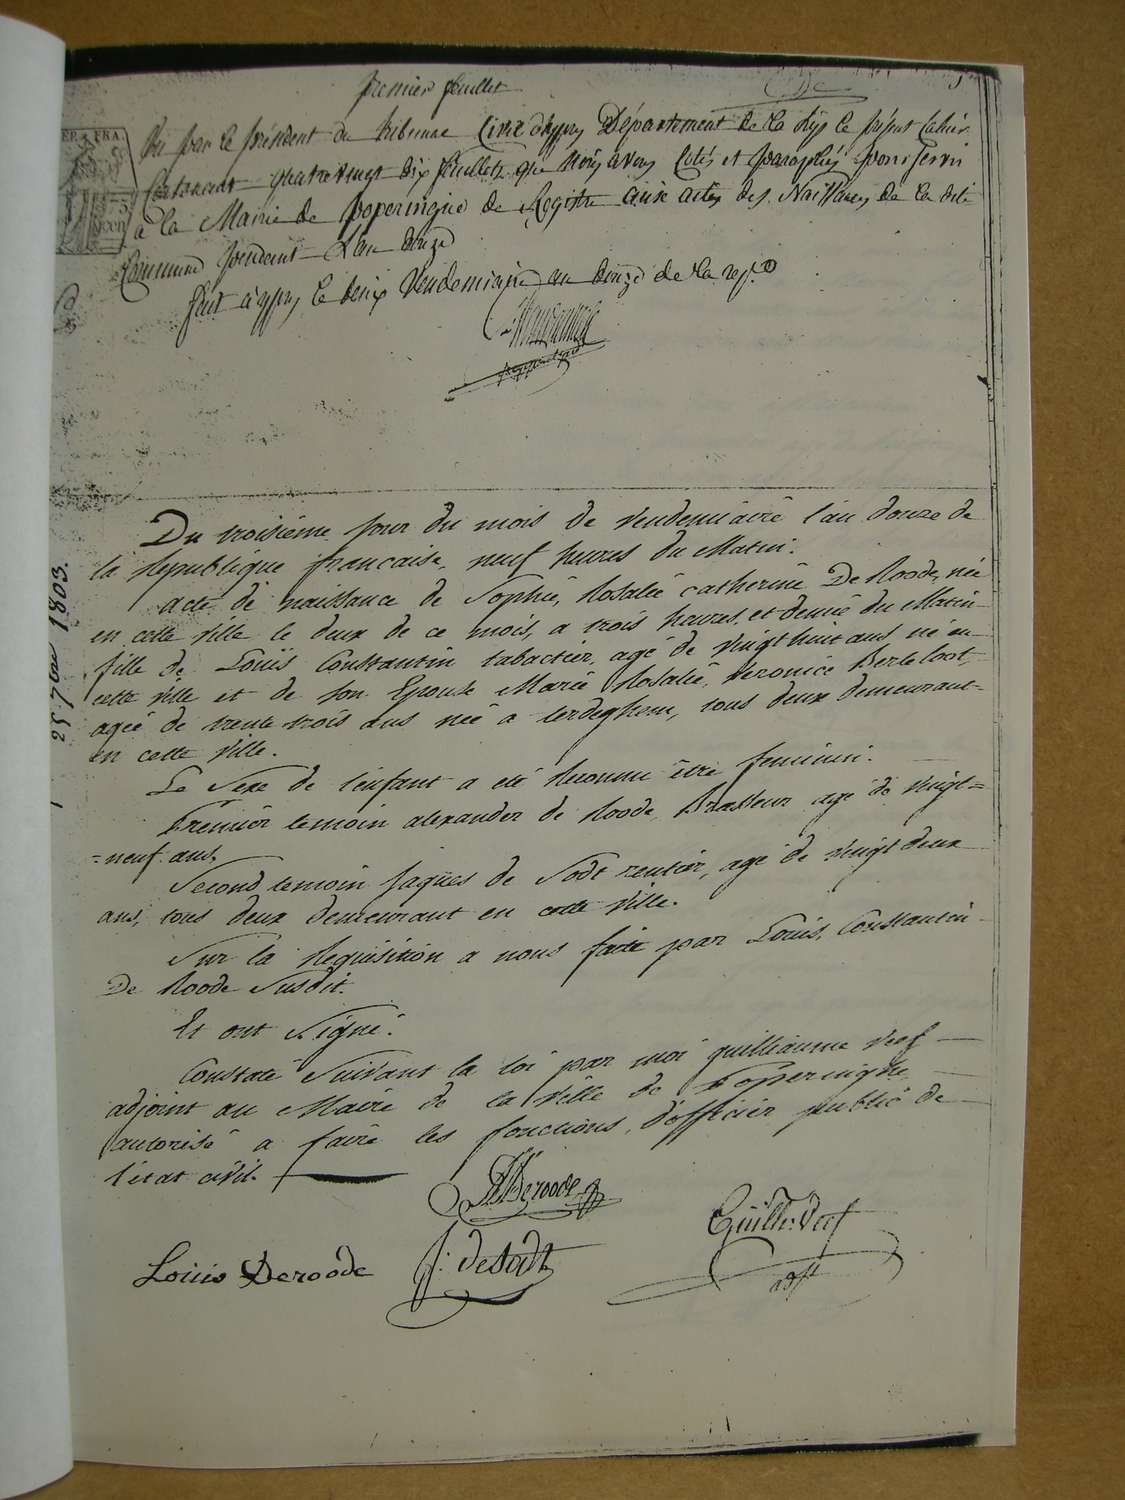 premier feuillet
REP. FRA.
Vu par le président du tribunal Civil d'ypres Département de la Lijs le présent Cahier
Contenant quatre vingt dix feuillets que nous avons Cotés et paraphés pour servir
à la Mairie de poperingue de Registre aux actes des Naissances de la dite
Commune pendant L'an douze
fait à ypres le deux Vendemiaire an douze de la rep.e
25 7bre 1803.
Du troisième jour du mois de vendemiaire l'an douze de
la Republique francaise, neuf heures du Matin.
acte de naissance de Sophie, Rosalie catherine De Roode, née
en cette ville le deux de ce mois, a trois heures et demie du Matin
fille de Louis Constantin tabactier, agé de vingt huit ans né en
cette ville et de son Epouse Marie Rosalie, Veronice Berteloot,
agée de trente trois ans née a terdeghem, tous deux demeurant
en cette ville.
Le Sexe de l'enfant a eté Reconnu être feminin.
Premier temoin alexander de Roode, Brasseur agé de vingt=
=neuf ans,
Second temoin jaques de Sodt rentier, agé de vingt deux
ans, tous deux demeurant en cette ville.
Sur la Requisition a nous faite par Louis, Constantin
De Roode susdit.
Et ont Signé.
Constaté Suivant la loi par moi guilliaume Verf
adjoint au Maire de la ville de Popperingue
autorisé a faire les fonctions d'officier public de
l'état civil.
Deroode
Guille. Verf
adjt
Louis Deroode
J: deSodt